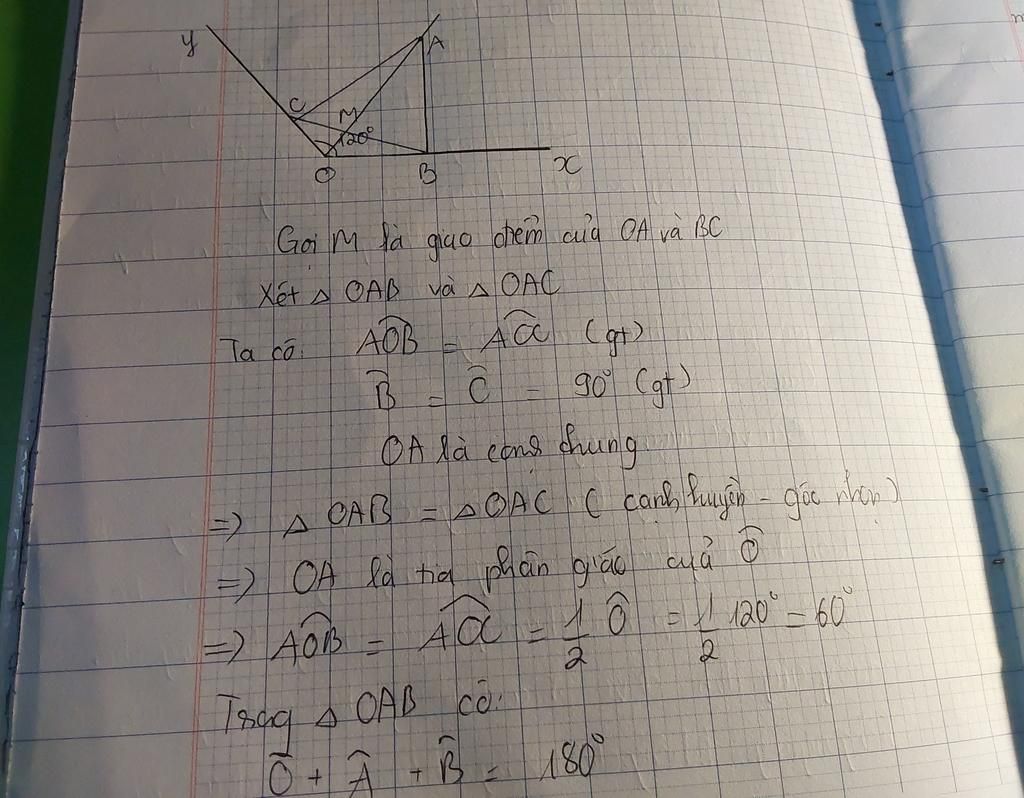 y
A
C
M
120°
O
B
x
Gọi M là giao điểm của OA và BC
Xét △ OAB và △ OAC
Ta có: AOB = AOC (gt)
B = C = 90° (gt)
OA là cạnh chung
=> △ OAB = △ OAC (cạnh huyền - góc nhọn)
=> OA là tia phân giác của O
=> AOB = AOC = 1/2 O = 1/2 120° = 60°
Trong △ OAB có:
O + A + B = 180°